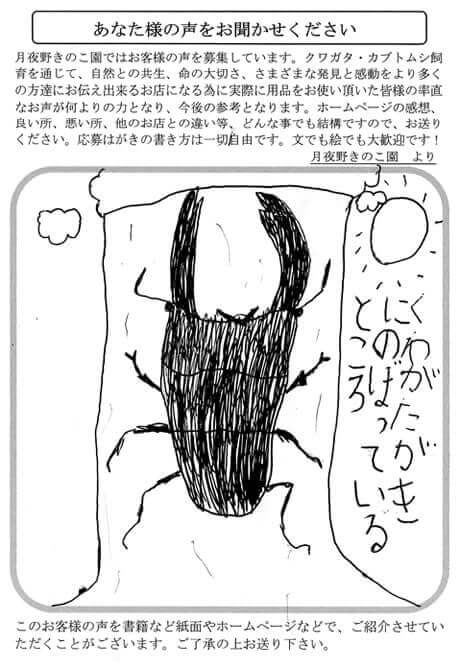 あなた様の声をお聞かせください
月夜野きのこ園ではお客様の声を募集しています。クワガタ・カブトムシ飼
育を通じて、自然との共生、命の大切さ、さまざまな発見と感動をより多く
の方達にお伝え出来るお店になる為に実際に用品をお使い頂いた皆様の率直
なお声が何よりの力となり、今後の参考となります。ホームページの感想、
良い所、悪い所、他のお店との違い等、どんな事でも結構ですので、お送り
ください。応募はがきの書き方は一切自由です。文でも絵でも大歓迎です！
月夜野きのこ園　より
くわがたがき
にのぼっている
ところ
このお客様の声を書籍など紙面やホームページなどで、ご紹介させてい
ただくことがございます。ご了承の上お送り下さい。